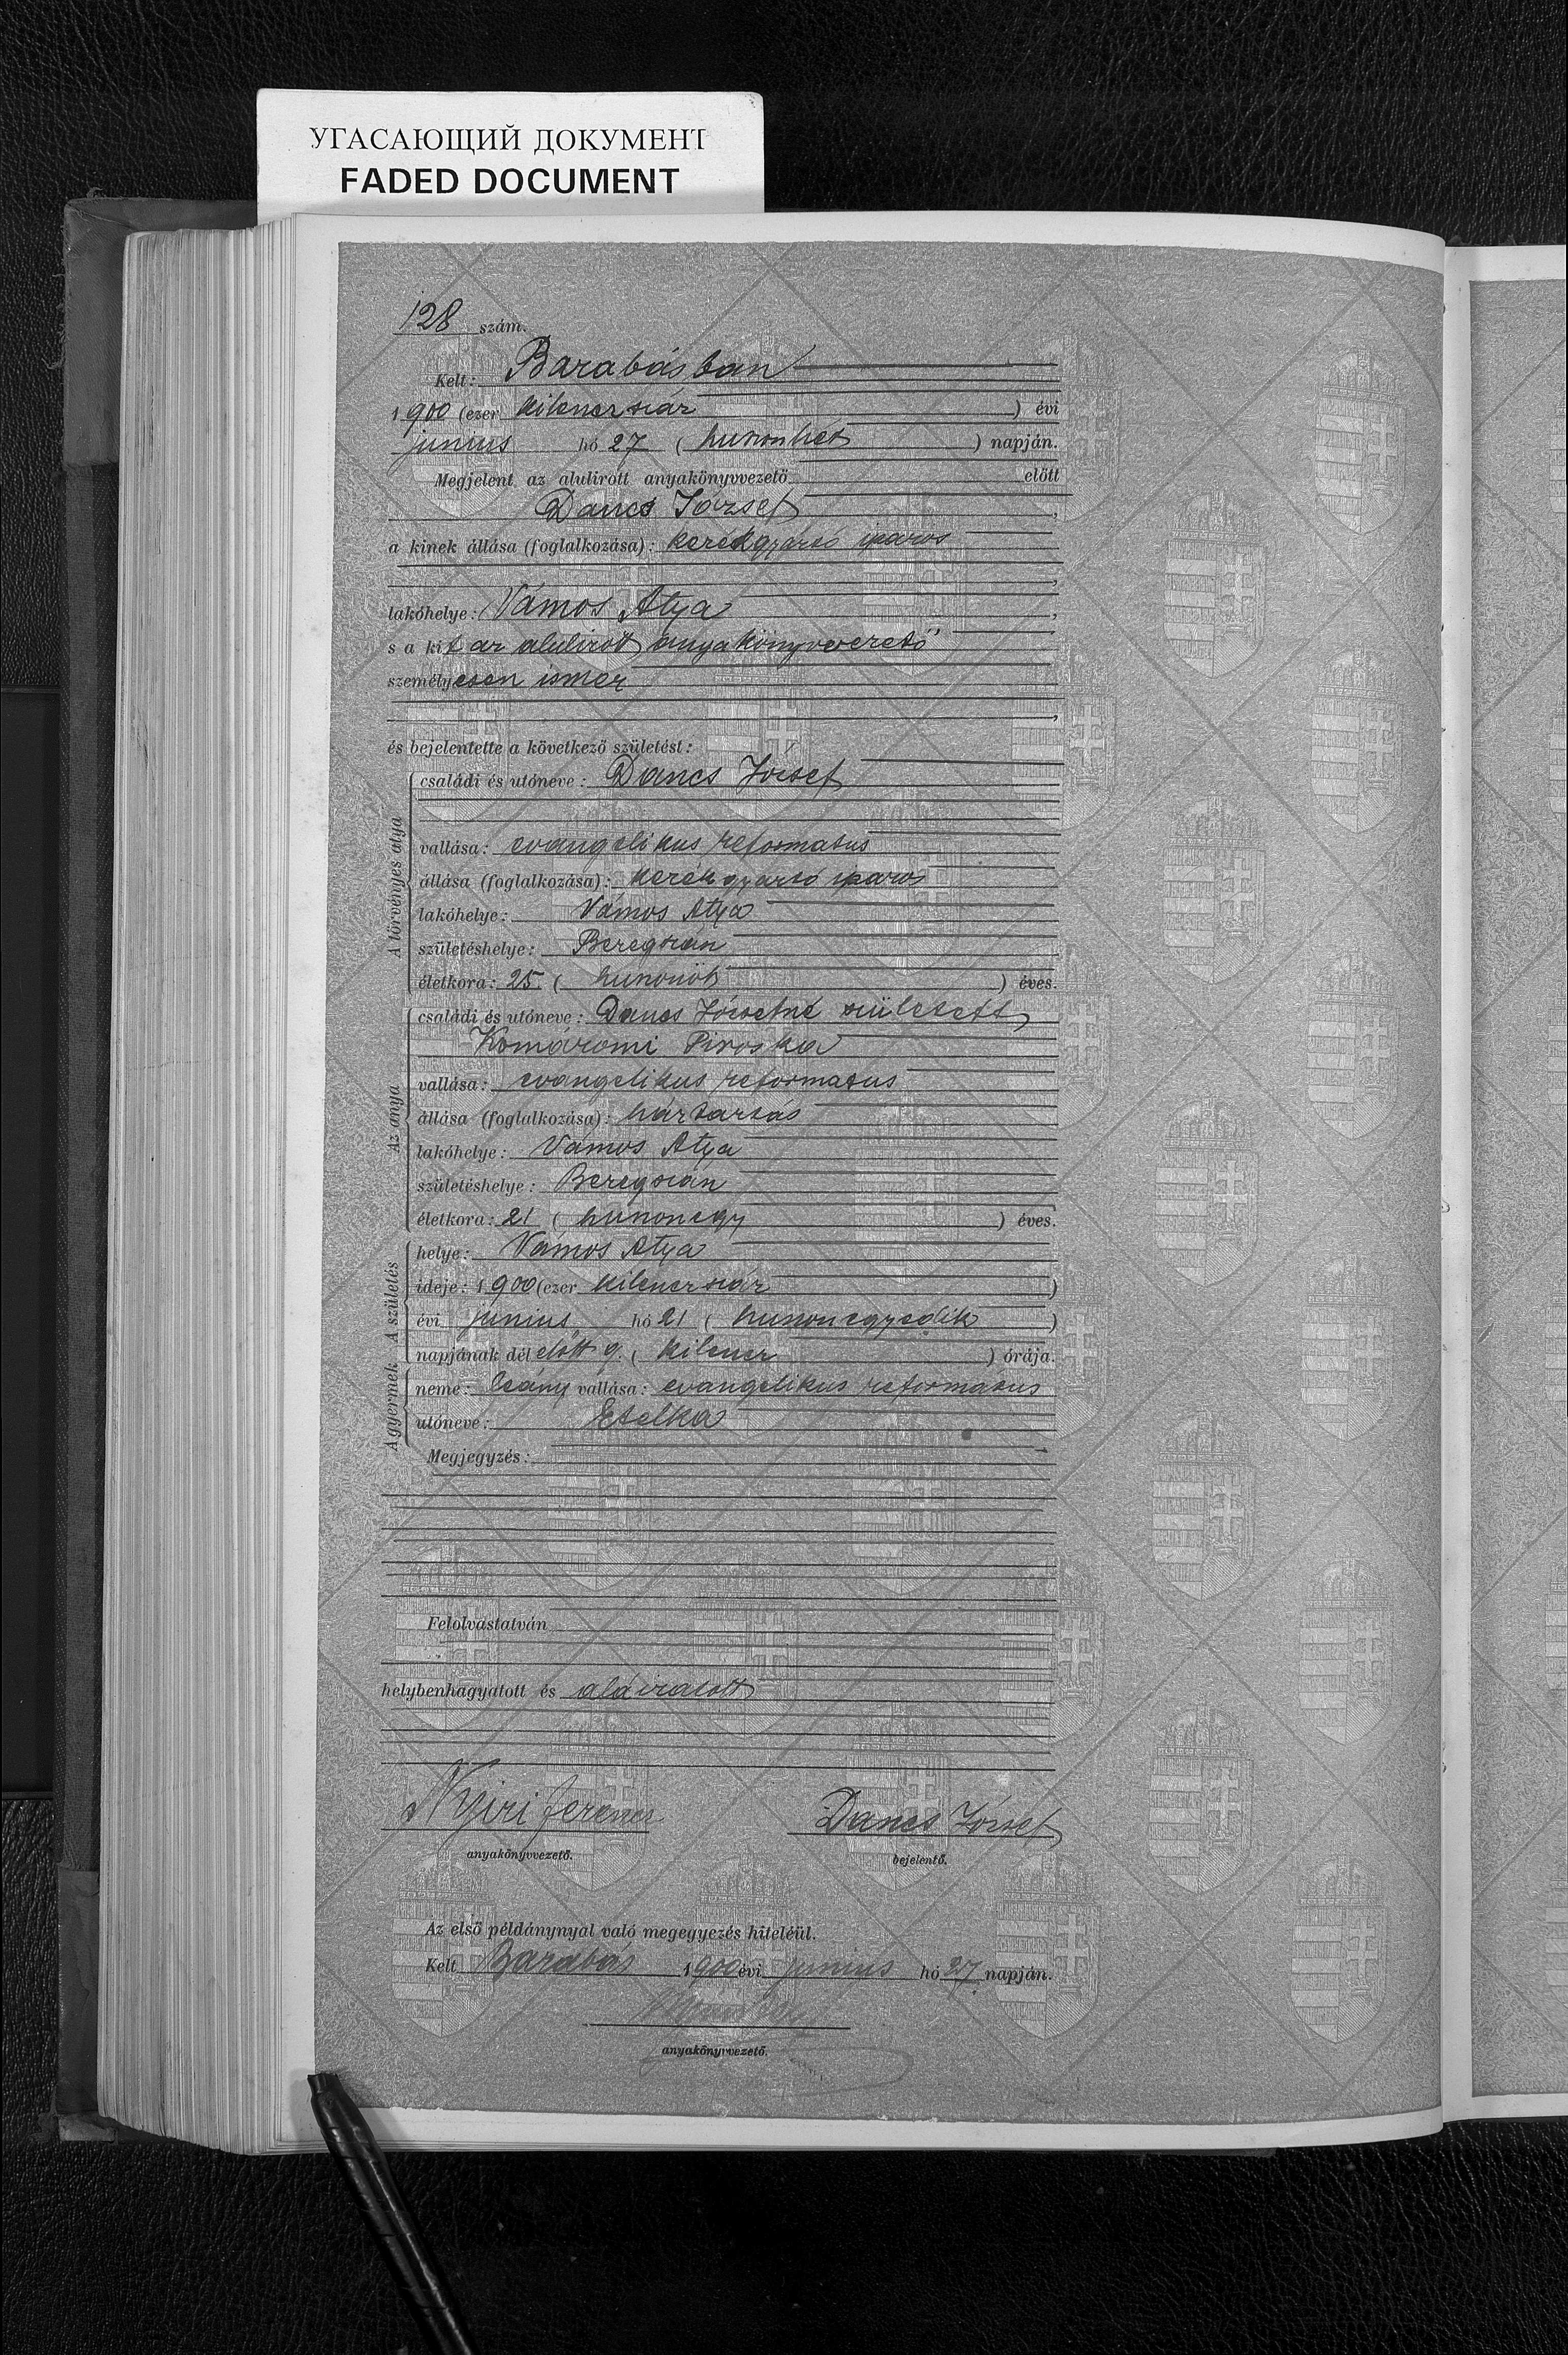 УГАСАЮЩИЙ ДОКУМЕНТ
FADED DOCUMENT
128 szám.
Kelt: Barabásban
1900 (ezer kilenczszáz) évi
junius hó 27 (huszonhet) napján.
Megjelent az alulirott anyakönyvvezető előtt
Dancs József,
a kinek állása (foglalkozása): kerékgyártó iparos
,
lakóhelye: Vámos Atya,
s a kit az alulirott anyakönyvvezető
személyesen ismer
,
és bejelentette a következő születést:
A törvényes atya
családi és utóneve: Dancs József
vallása: evangelikus reformatus
állása (foglalkozása): kerékgyártó iparos
lakóhelye: Vámos Atya
születéshelye: Beregszán
életkora: 25 (huszonöt) éves.
Az anya
családi és utóneve: Dancs Józsefné született
Komáromi Piroska
vallása: evangelikus reformatus
állása (foglalkozása): háztartás
lakóhelye: Vámos Atya
születéshelye: Beregszán
életkora: 21 (huszonegy) éves.
A születés
helye: Vámos Atya
ideje: 1900 (ezer kilenczszáz)
évi junius hó 21 (huszonegyedik)
napjának dél előtt 9. (kilencz) órája.
A gyermek
neme: leány vallása: evangelikus reformatus
utóneve: Etelka
Megjegyzés:
Felolvastatván
helybenhagyatott és aláiratott
Nyiri Ferencz
anyakönyvvezető.
Dancs József
bejelentő.
Az első példánynyal való megegyezés hiteléül.
Kelt Barabás 1900 évi junius hó 27 napján.
anyakönyvvezető.